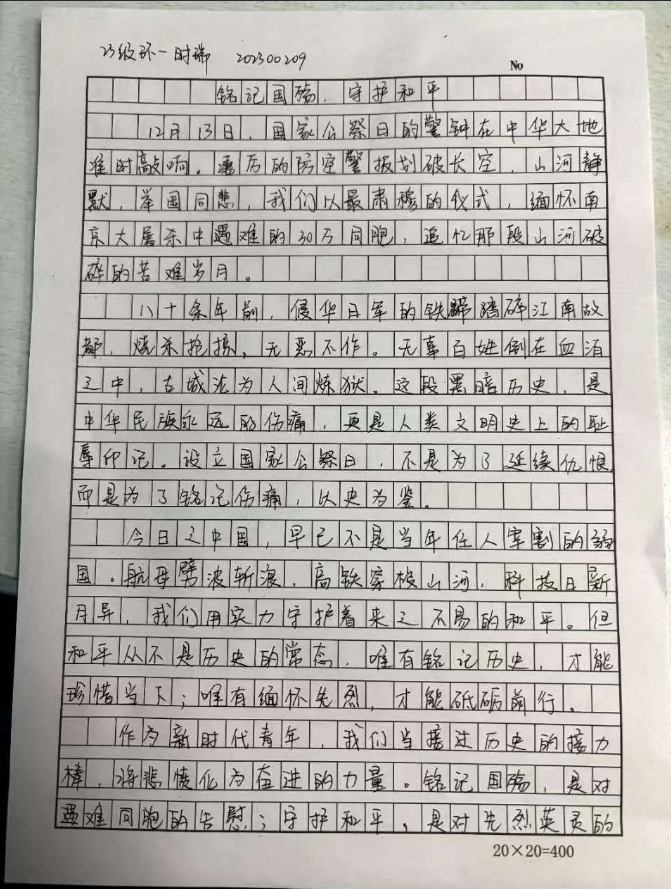 23级环一 时瑞 202300209
No
铭记国殇，守护和平
12月13日，国家公祭日的警钟在中华大地
准时敲响。凄厉的防空警报划破长空，山河静
默，举国同悲，我们以最肃穆的仪式，缅怀南
京大屠杀中遇难的30万同胞，追忆那段山河破
碎的苦难岁月。
八十余年前，侵华日军的铁蹄踏碎江南故
都，烧杀抢掠，无恶不作。无辜百姓倒在血泊
之中，古城沦为人间炼狱。这段黑暗历史，是
中华民族永远的伤痛，更是人类文明史上的耻
辱印记。设立国家公祭日，不是为了延续仇恨
而是为了铭记伤痛，以史为鉴。
今日之中国，早已不是当年任人宰割的弱
国。航母劈波斩浪，高铁穿梭山河，科技日新
月异，我们用实力守护着来之不易的和平。但
和平从不是历史的常态，唯有铭记历史，才能
珍惜当下；唯有缅怀先烈，才能砥砺前行。
作为新时代青年，我们当接过历史的接力
棒，将悲愤化为奋进的力量。铭记国殇，是对
遇难同胞的告慰；守护和平，是对先烈英灵的
20×20=400